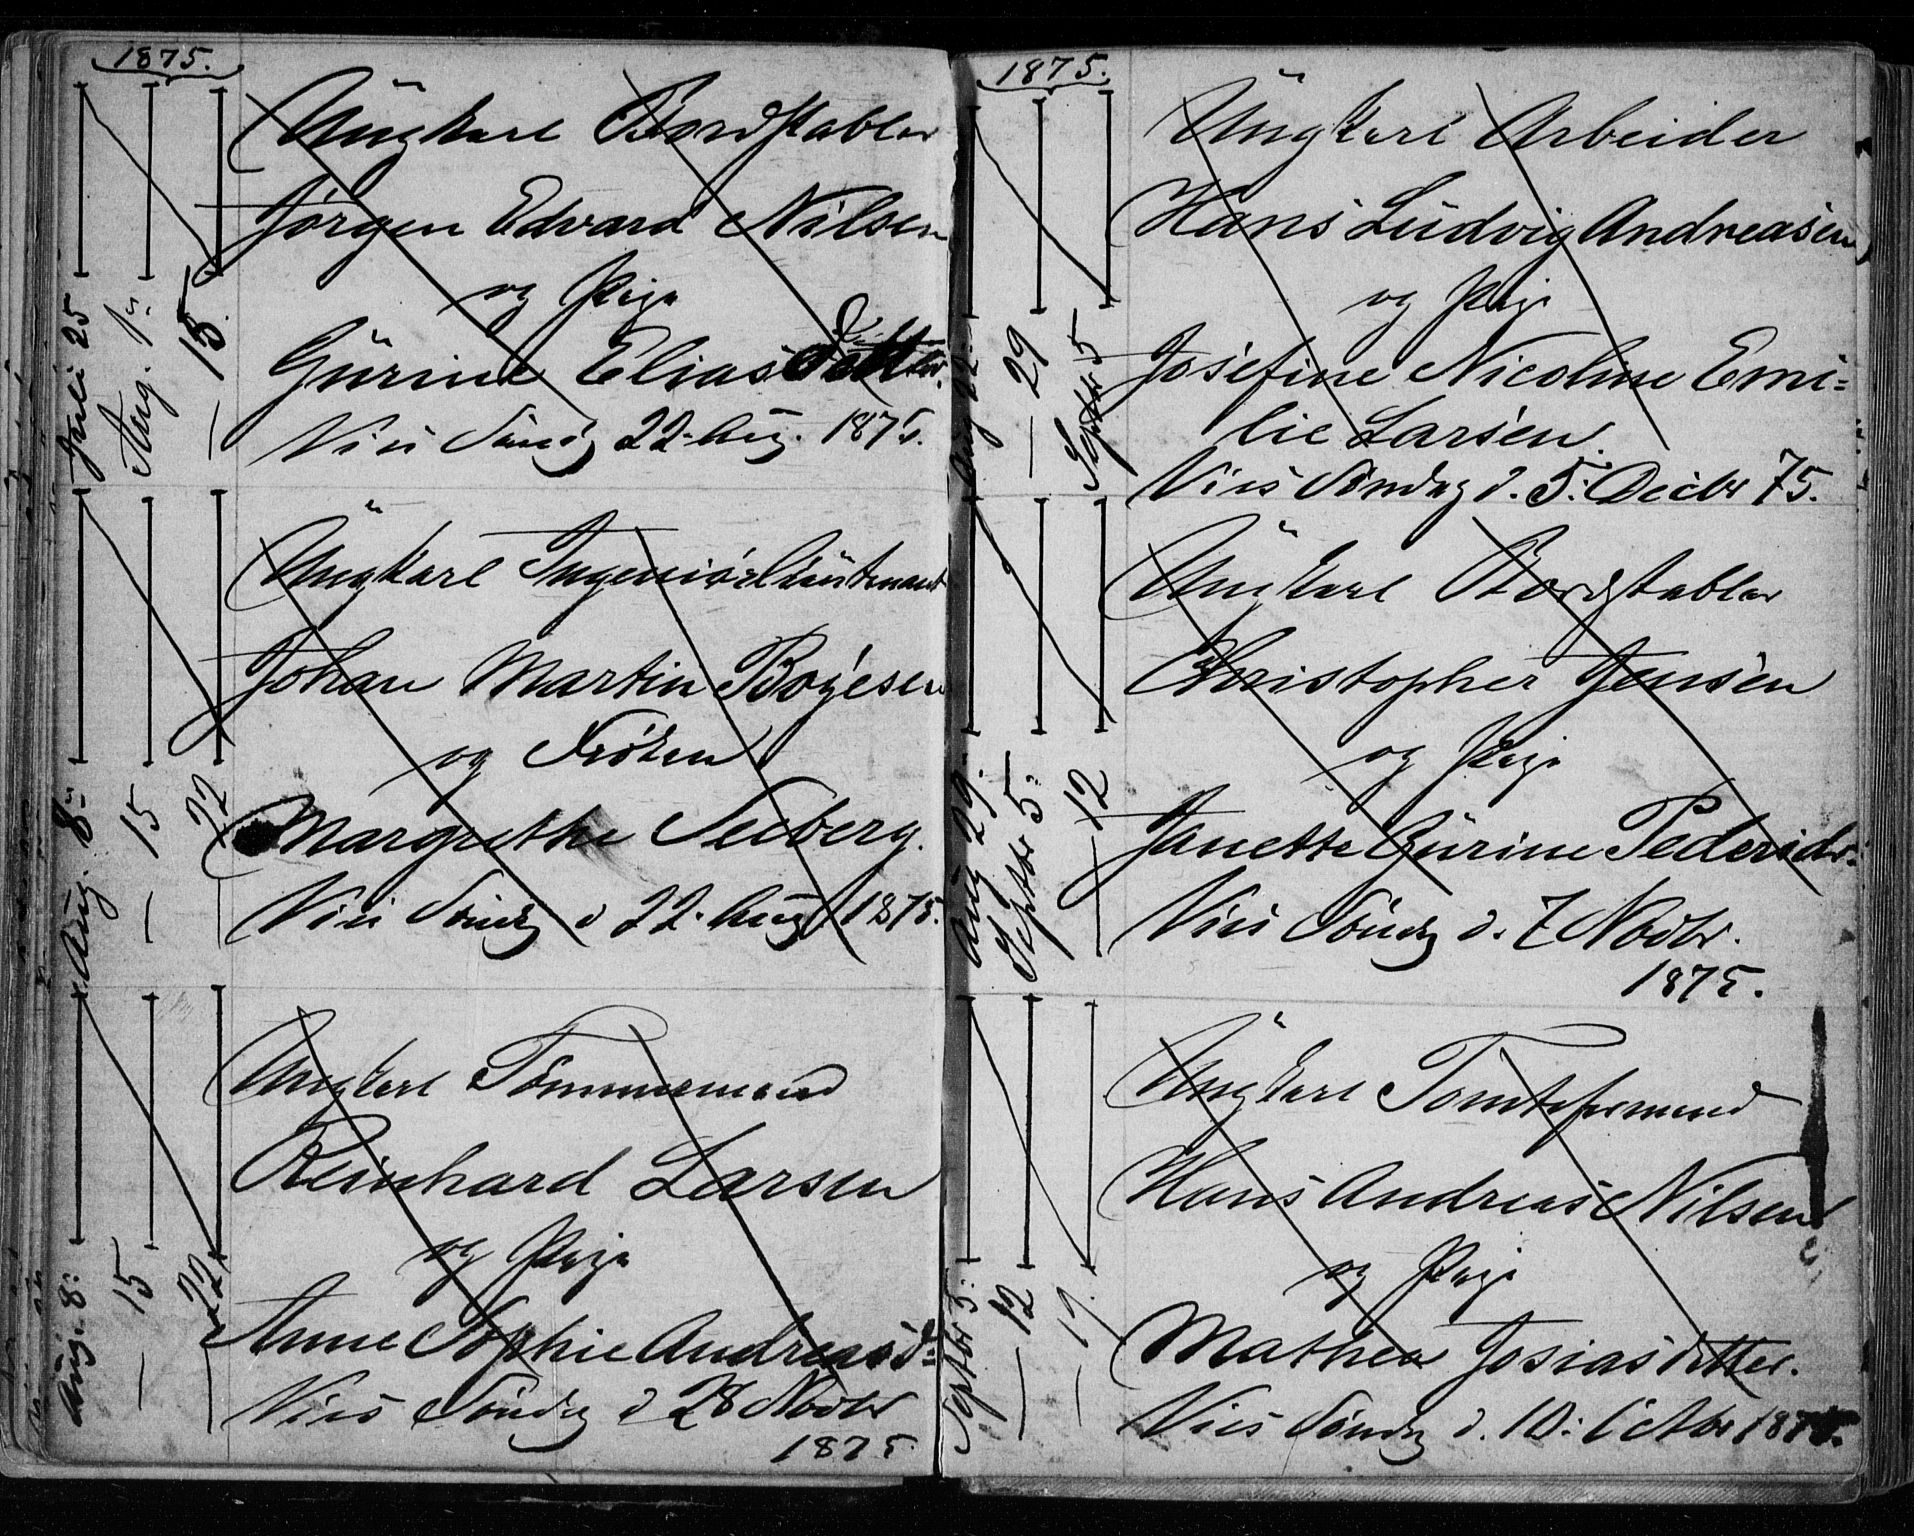 1875.
Juli 25
Aug. 1ü
— 15.
Ungkarl Bordstabler
Jørgen Edvard Nilsen
og Pige
Gurine Eliasdatter.
Vies Søndg 22. Aug. 1875.
Aug. 8ü
— 15
— 22
Ungkarl Ingeniørlieutenant
Johan Martin Boyesen
og Frøken
Margrethe Seeberg.
Vies Søndg d 22. Aug 1875.
Aug. 8:
— 15
— 22
Ungkarl Tømmermand
Reinhard Larsen
og Pige
Anne Sophie Andreasd=
Vies Søndg d 28 Novbr
1875.
1875.
Aug 22.
— 29
Septbr 5
Ungkarl Arbeider
Hans Ludvig Andreasen
og Pige
Josefine Nicoline Emi=
lie Larsen.
Vies Søndag d. 5: Decbr 75.
Aug 29.
Septbr 5:
— 12
Ungkarl Bordstabler
Christopher Jensen
og Pige
Janette Gurine Pedersdr.
Vies Søndg d. 7 Novbr.
1875.
Septbr 5:
— 12
— 19.
Ungkarl Tomteformand
Hans Andreas Nilsen
og Pige
Mathea Josiasdatter.
Vies Søndg d. 10: Octbr 1875.